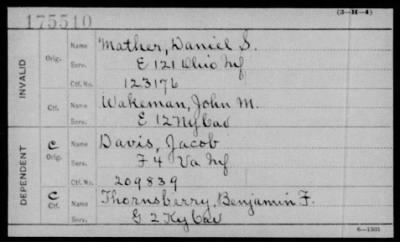 175510 (3-H-4)
INVALID
Orig. Name Mather, Daniel S.
Serv. E 121 Ohio Inf
Ctf. No. 123176
Ctf. Name Wakeman, John M.
Serv. E 12 NY Cav
DEPENDENT
C Orig. Name Davis, Jacob
Serv. F 4 Va Inf
Ctf. No. 209839
C Ctf. Name Thornsberry, Benjamin F.
Serv. G 2 Ky Cav
6-1301